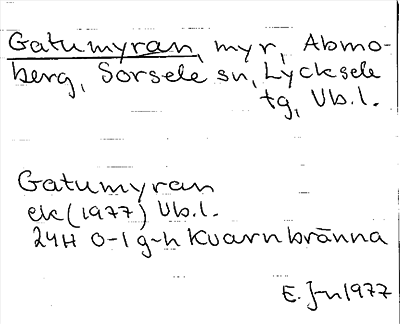 Gatumyran, myr, Abmo-
berg, Sorsele sn, Lycksele
tg, Vb.l.
Gatumyran
ek (1977) Vb.l.
24H 0-1 g-h Kvarnbränna
E. Jn 1977